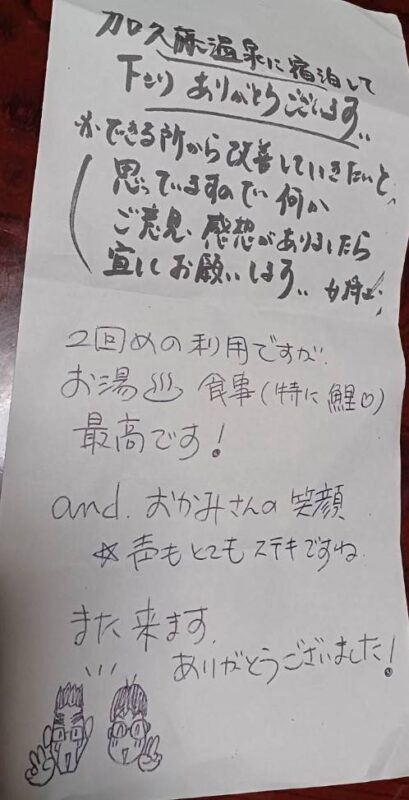 加久藤温泉に宿泊して
下さり ありがとうございます。
※できる所から改善していきたいと
思っていますので 何か
ご意見、感想がありましたら
宜しくお願いします。 女将より
2回めの利用ですが、
お湯♨ 食事(特に鯉♡)
最高です!
and. おかみさんの笑顔
☆声もとてもステキですね
また来ます。
ありがとうございました!